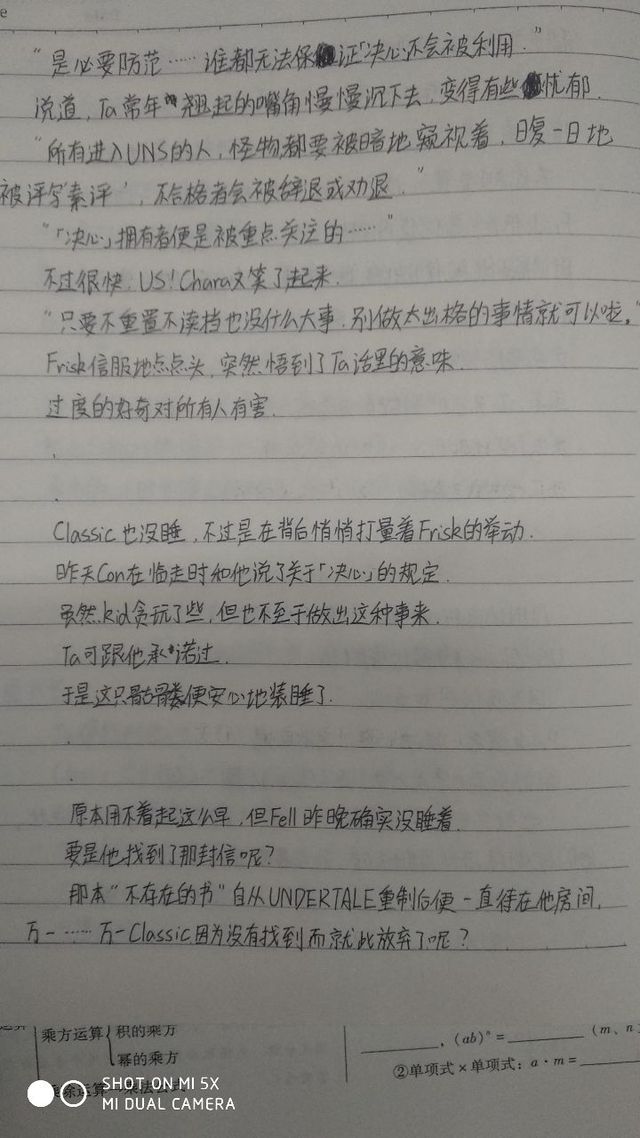 e
“是必要防范……谁都无法保证「决心」不会被利用.”
说道，Ta常年翘起的嘴角慢慢沉下去，变得有些忧郁.
“所有进入UNS的人，怪物都要被暗地窥视着，日复一日地
被评写‘素评’，不合格者会被辞退或劝退.”
“「决心」拥有者便是被重点关注的……”
不过很快，US!Chara又笑了起来.
“只要不重置不读档也没什么大事，别做太出格的事情就可以啦。”
Frisk信服地点点头，突然悟到了Ta话里的意味.
过度的好奇对所有人有害.
.
.
Classic也没睡，不过是在背后悄悄打量着Frisk的举动.
昨天Con在临走时和他说了关于「决心」的规定.
虽然kid贪玩了些，但也不至于做出这种事来.
Ta可跟他承诺过.
于是这只骷髅便安心地装睡了.
.
.
原本用不着起这么早，但Fell昨晚确实没睡着.
要是他找到了那封信呢？
那本“不存在的书”自从UNDERTALE重制后便一直待在他房间，
万一……万一Classic因为没有找到而就此放弃了呢？
乘方运算 积的乘方
幂的乘方
，(ab)ⁿ= (m、n
②单项式×单项式：a·m=
乘除运算 乘法公式
SHOT ON MI 5X
MI DUAL CAMERA